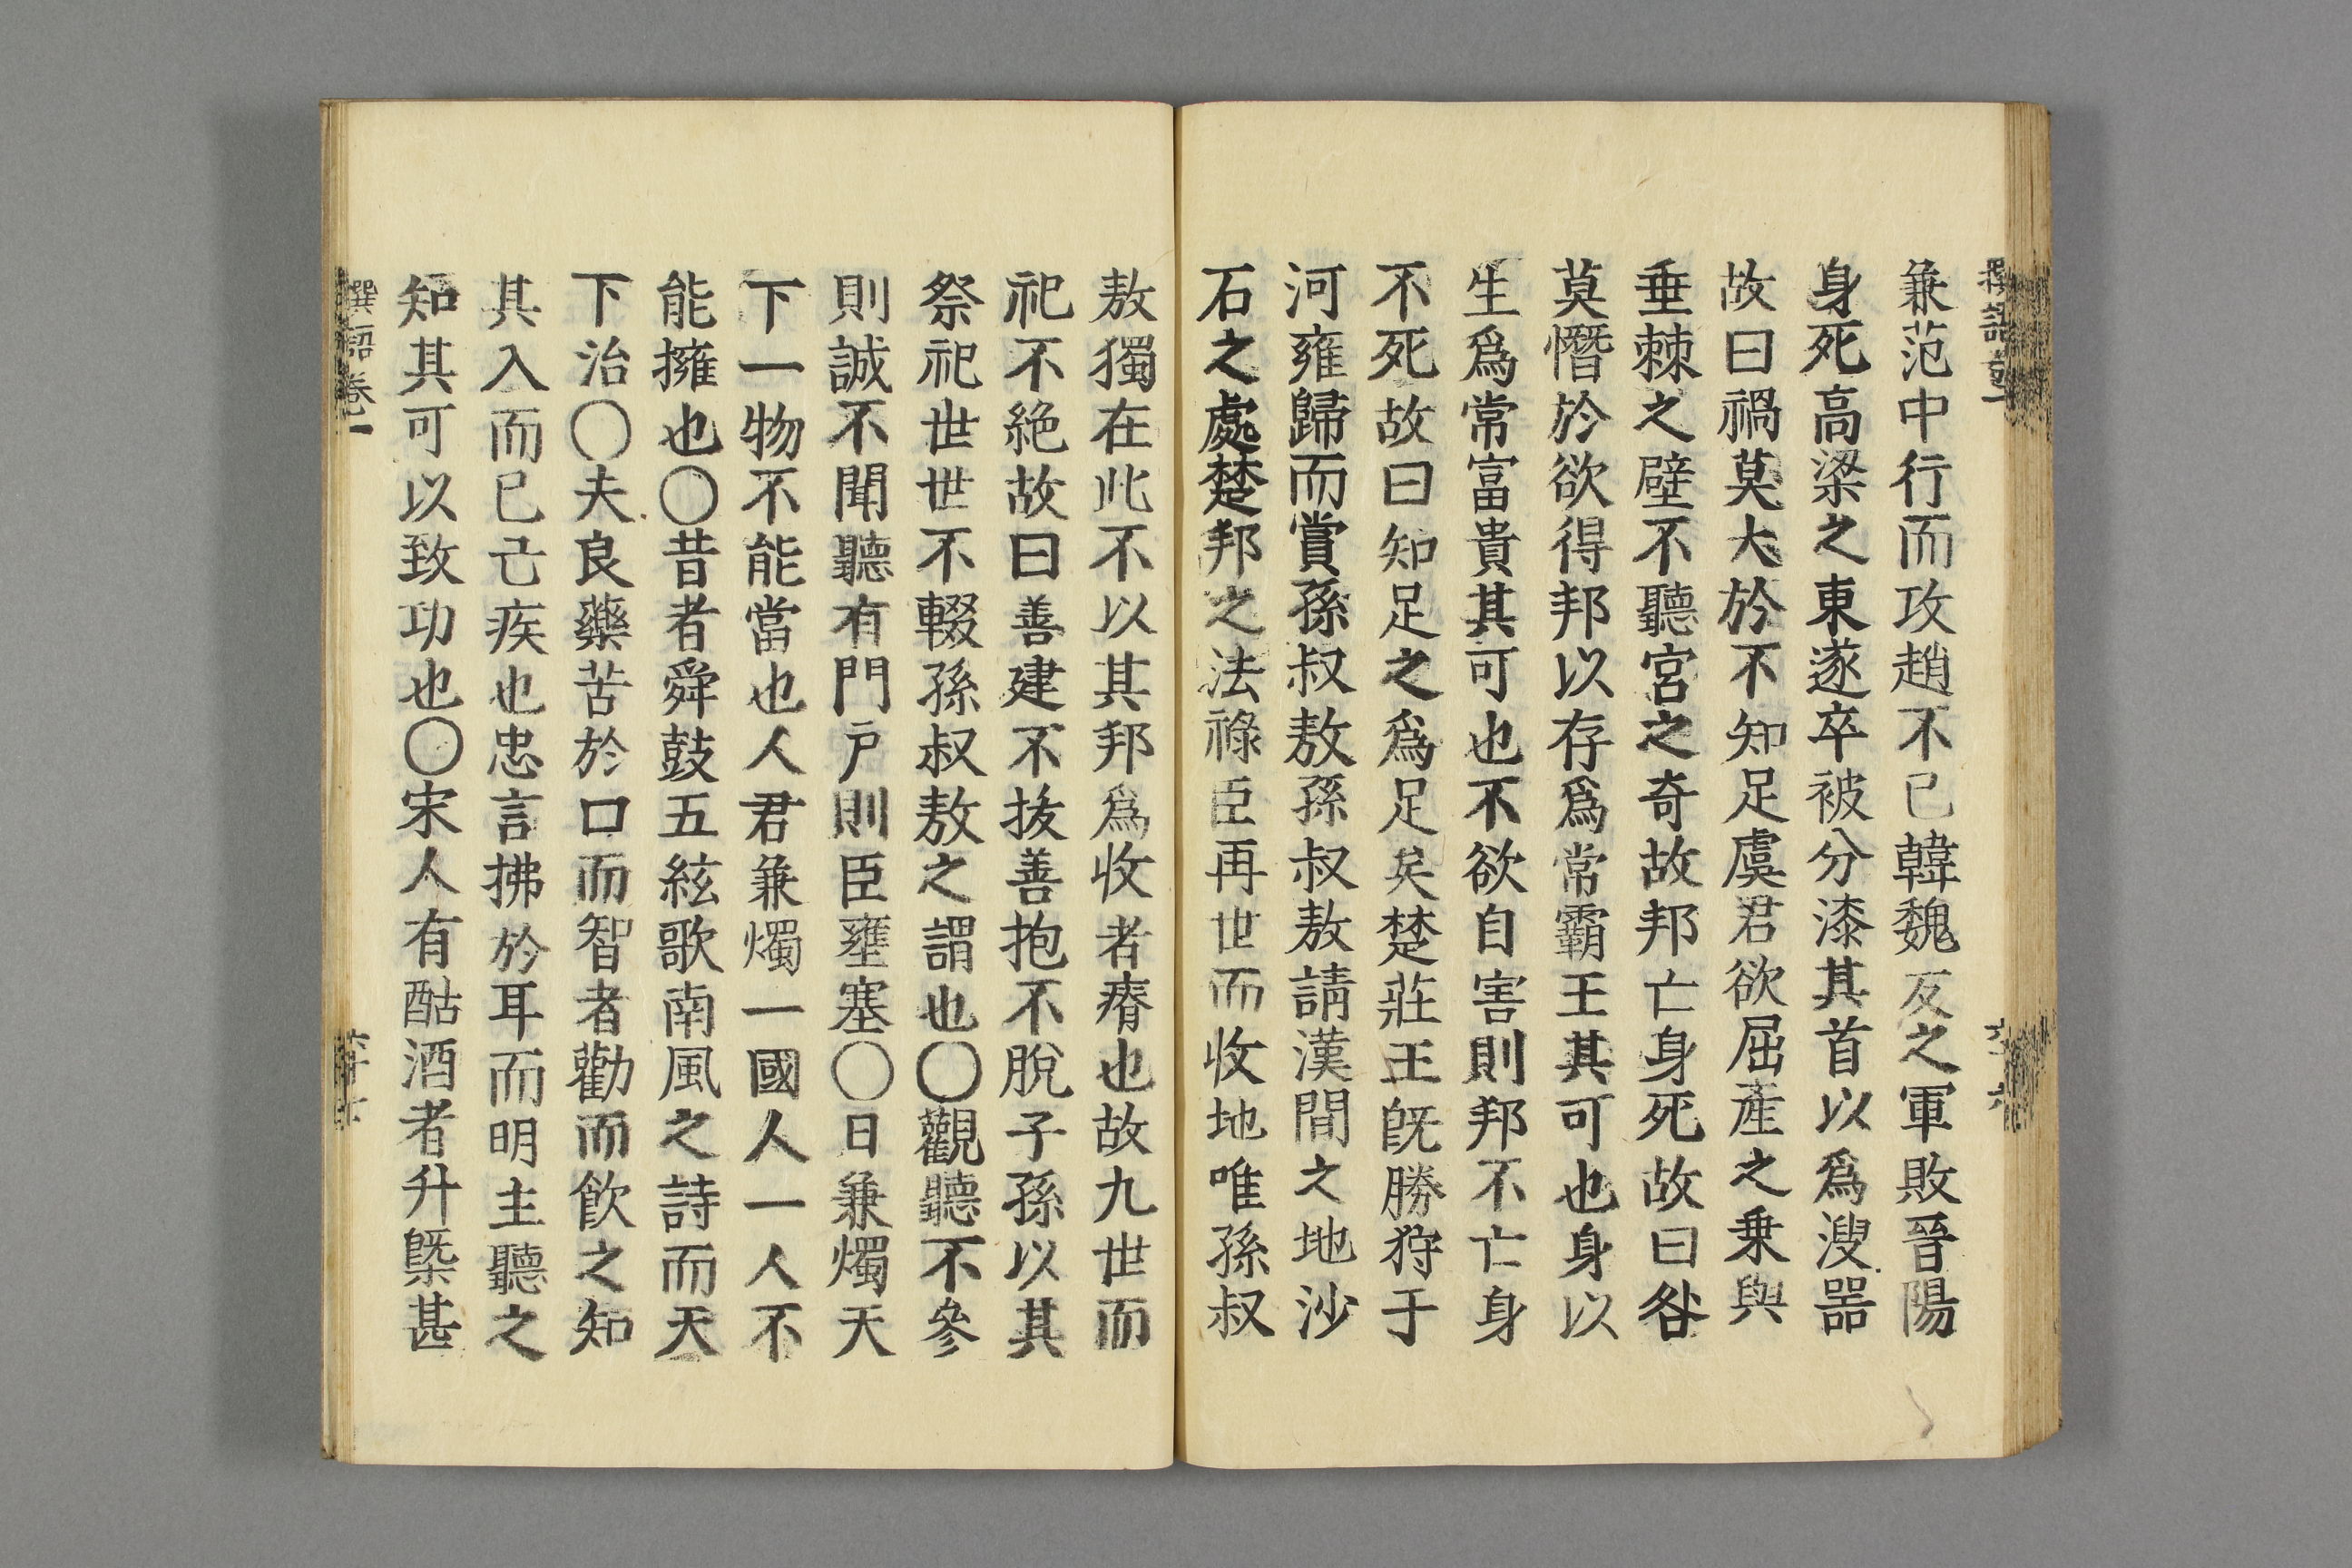 撰語卷一
兼范中行而攻趙不已韓魏反之軍敗晉陽
身死高梁之東遂卒被分漆其首以爲溲器
故曰禍莫大於不知足虞君欲屈產之乗與
垂棘之璧不聽宮之奇故邦亡身死故曰咎
莫憯於欲得邦以存爲常霸王其可也身以
生爲常富貴其可也不欲自害則邦不亡身
不死故曰知足之爲足矣楚莊王旣勝狩于
河雍歸而賞孫叔敖孫叔敖請漢間之地沙
石之處楚邦之法祿臣再世而收地唯孫叔
敖獨在此不以其邦爲收者瘠也故九世而
祀不絶故曰善建不拔善抱不脫子孫以其
祭祀世世不輟孫叔敖之謂也〇觀聽不參
則誠不聞聽有門戶則臣壅塞〇日兼燭天
下一物不能當也人君兼燭一國人一人不
能擁也〇昔者舜鼓五絃歌南風之詩而天
下治〇夫良藥苦於口而智者勸而飮之知
其入而已己疾也忠言拂於耳而明主聽之
知其可以致功也〇宋人有酤酒者升槩甚
撰語卷一
六十七